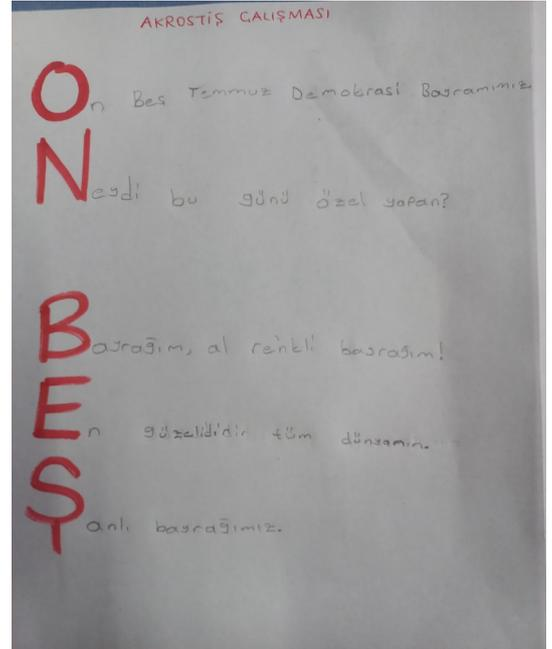 AKROSTİŞ ÇALIŞMASI
On Beş Temmuz Demokrasi Bayramımız
Neydi bu günü özel yapan?
Bayrağım, al renkli bayrağım!
En güzelididir tüm dünyamın.
Şanlı bayrağımız.